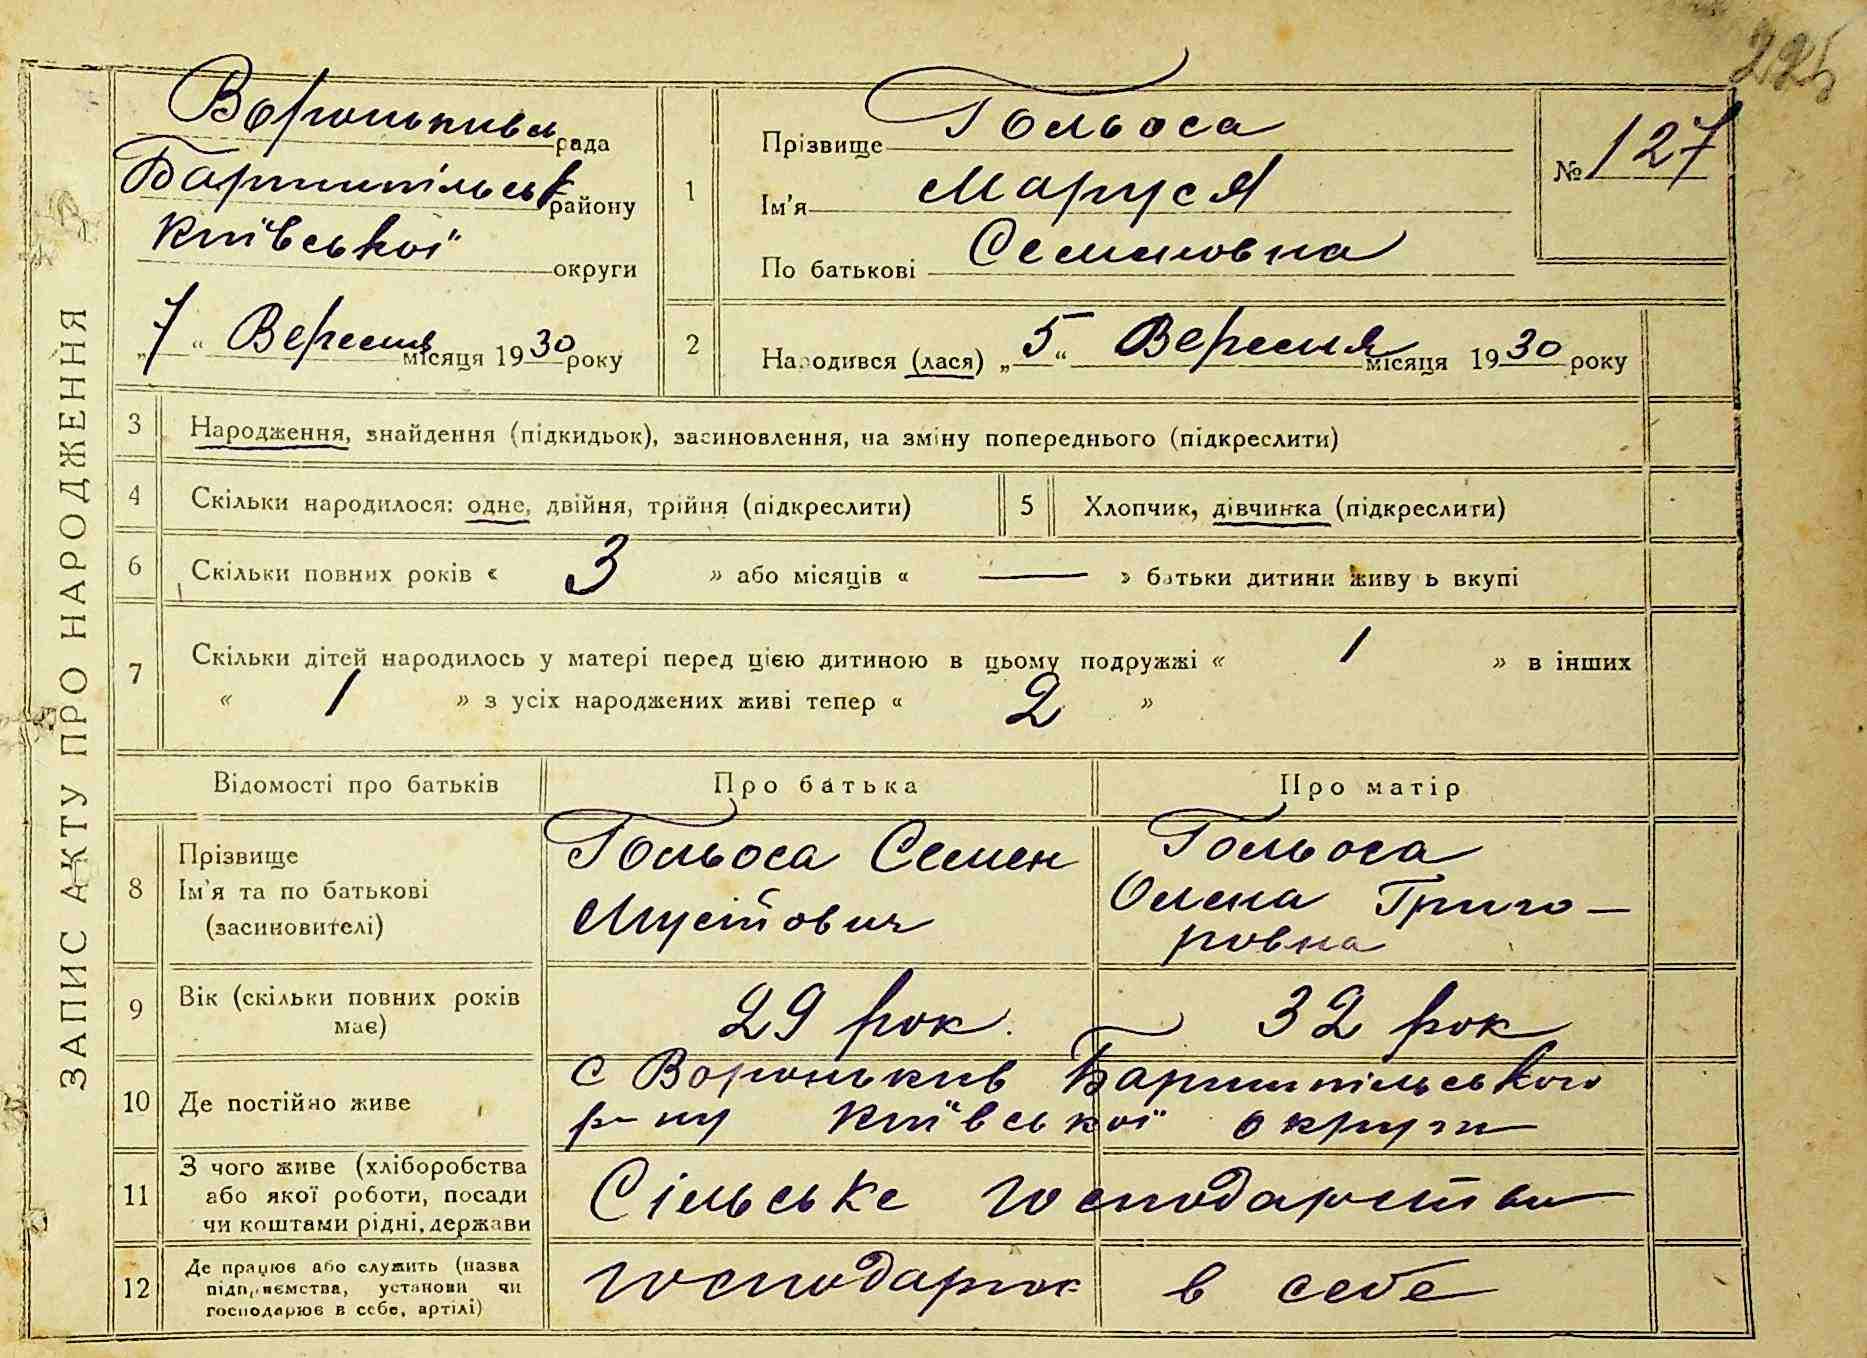 225
ЗАПИС АКТУ ПРО НАРОДЖЕННЯ
Вороньківсь рада
Баришпільськ району
Київської округи
„7“ Вересня місяця 1930 року
1
Прізвище Гольоса
Ім'я Маруся
По батькові Семеновна
№ 127
2 Народився (лася) „5“ Вересня місяця 1930 року
3 Народження, знайдення (підкидьок), засиновлення, на зміну попереднього (підкреслити)
4 Скільки народилося: одне, двійня, трійня (підкреслити) 5 Хлопчик, дівчинка (підкреслити)
6 Скільки повних років « 3 » або місяців « — » батьки дитини живуть вкупі
7 Скільки дітей народилось у матері перед цією дитиною в цьому подружжі « 1 » в інших
« 1 » з усіх народжених живі тепер « 2 »
Відомості про батьків Про батька Про матір
8 Прізвище
Ім'я та по батькові
(засиновителі)
Гольоса Семен
Мусійович
Гольоса
Олена Григо-
ровна
9 Вік (скільки повних років
має)
29 рок. 32 рок
10 Де постійно живе
с Вороньків Баришпільського
р-ну Київської округи
11 З чого живе (хліборобства
або якої роботи, посади
чи коштами рідні, держави
Сільське господарство
12 Де працює або служить (назва
підприємства, установи чи
господарює в себе, артілі)
господарює в себе